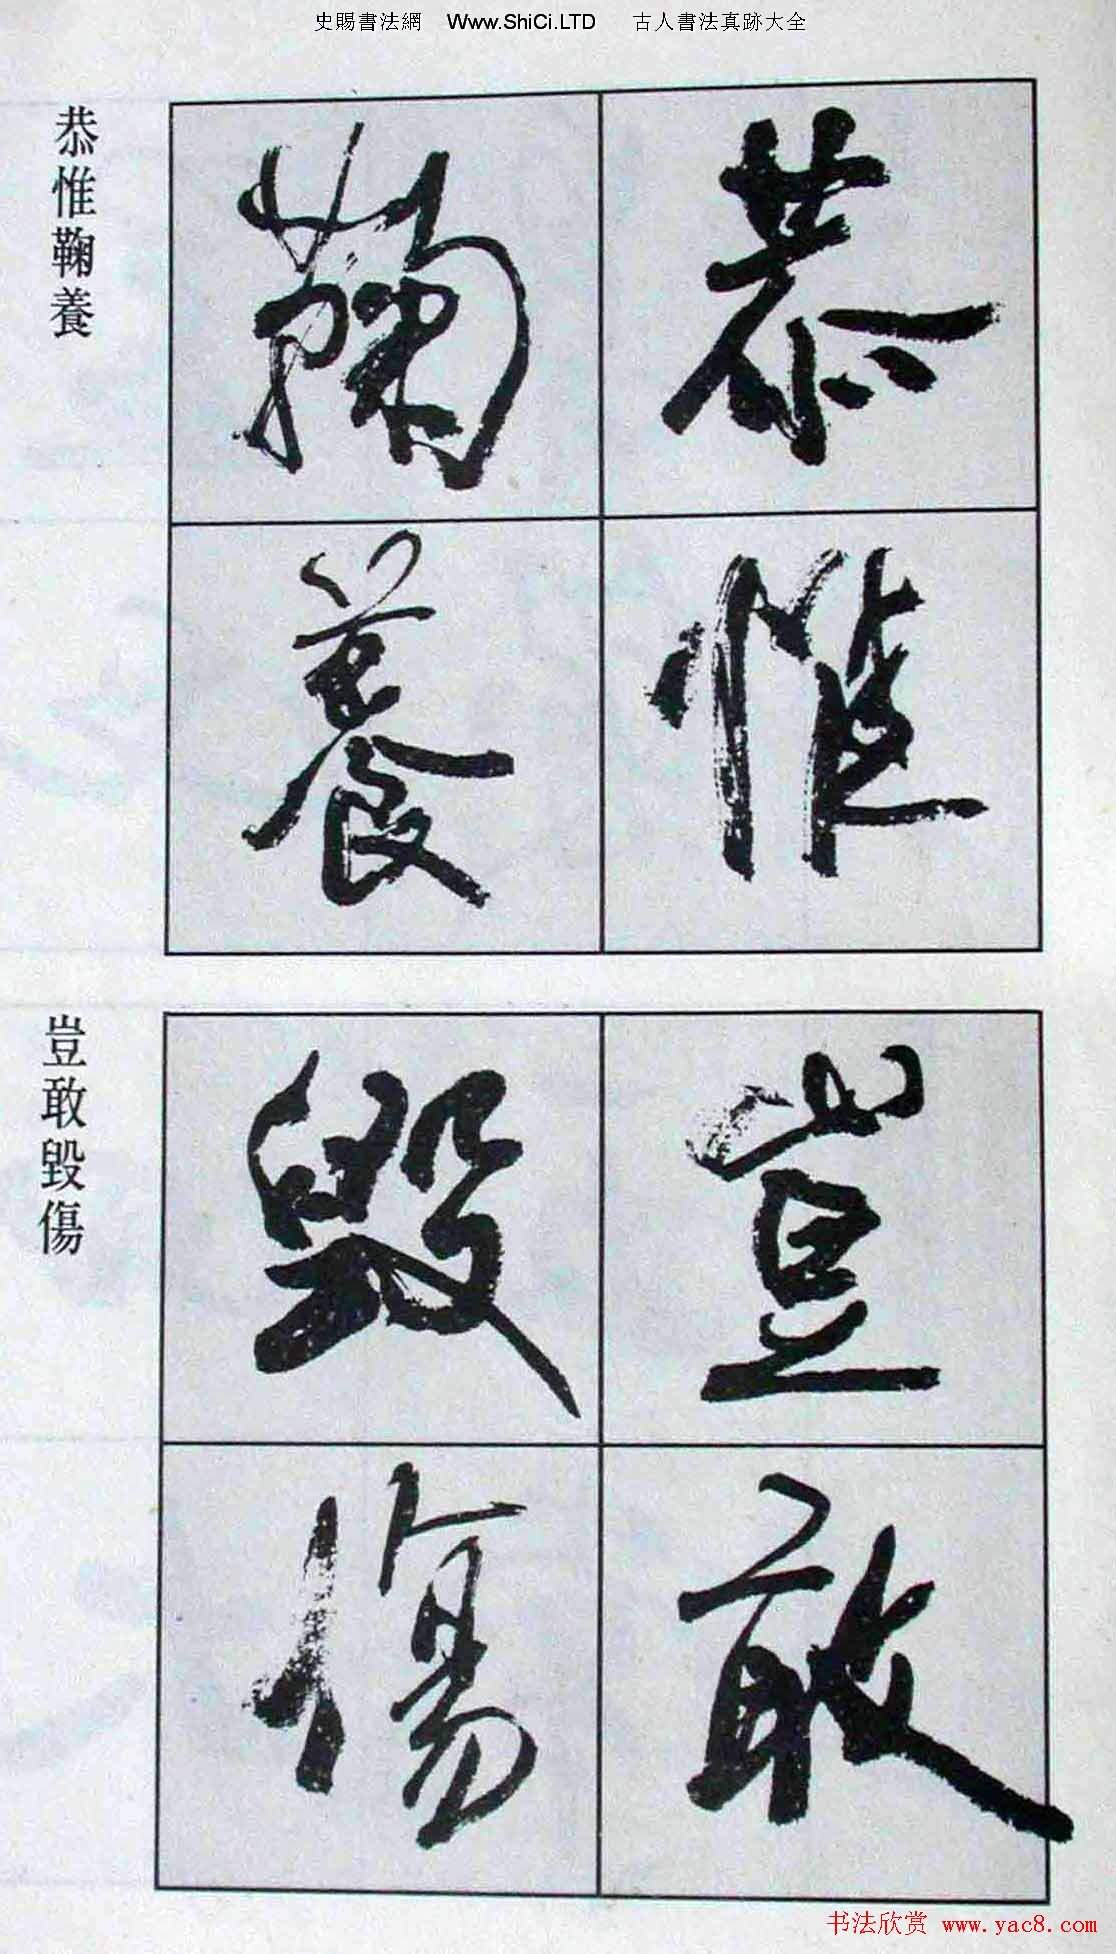 史賜書法網 Www.ShiCi.LTD 古人書法真跡大全
恭惟
鞠養
恭惟鞠養
豈敢
毀傷
豈敢毀傷
书法欣赏 www.yac8.com